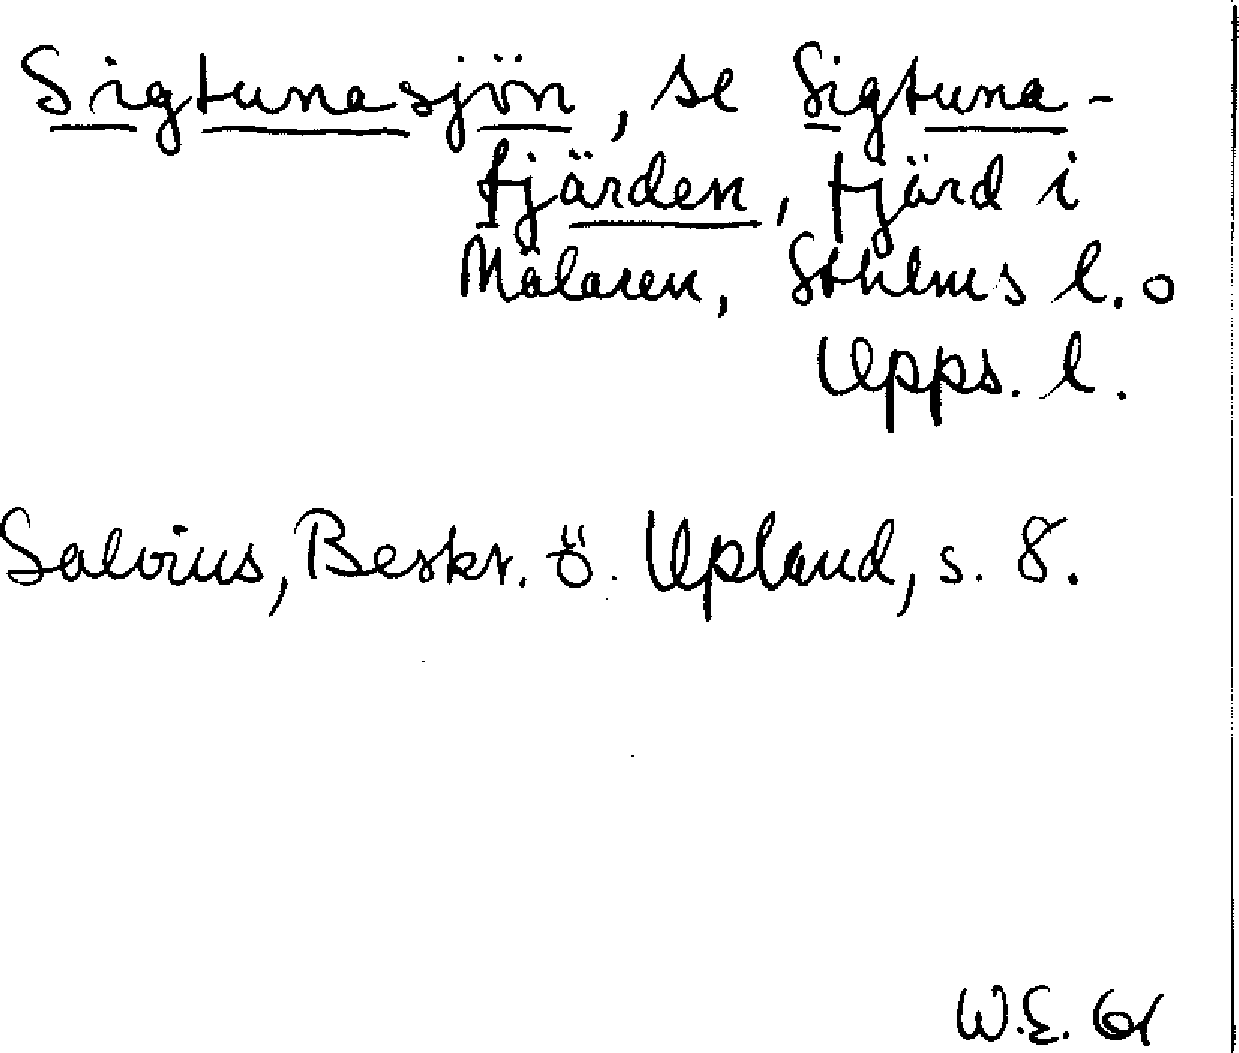 Sigtunasjön, se Sigtuna-
fjärden, fjärd i
Mälaren, Sthlms l. o
Upps. l.
Salvius, Beskr. ö. Upland, s. 8.
W.E. 61